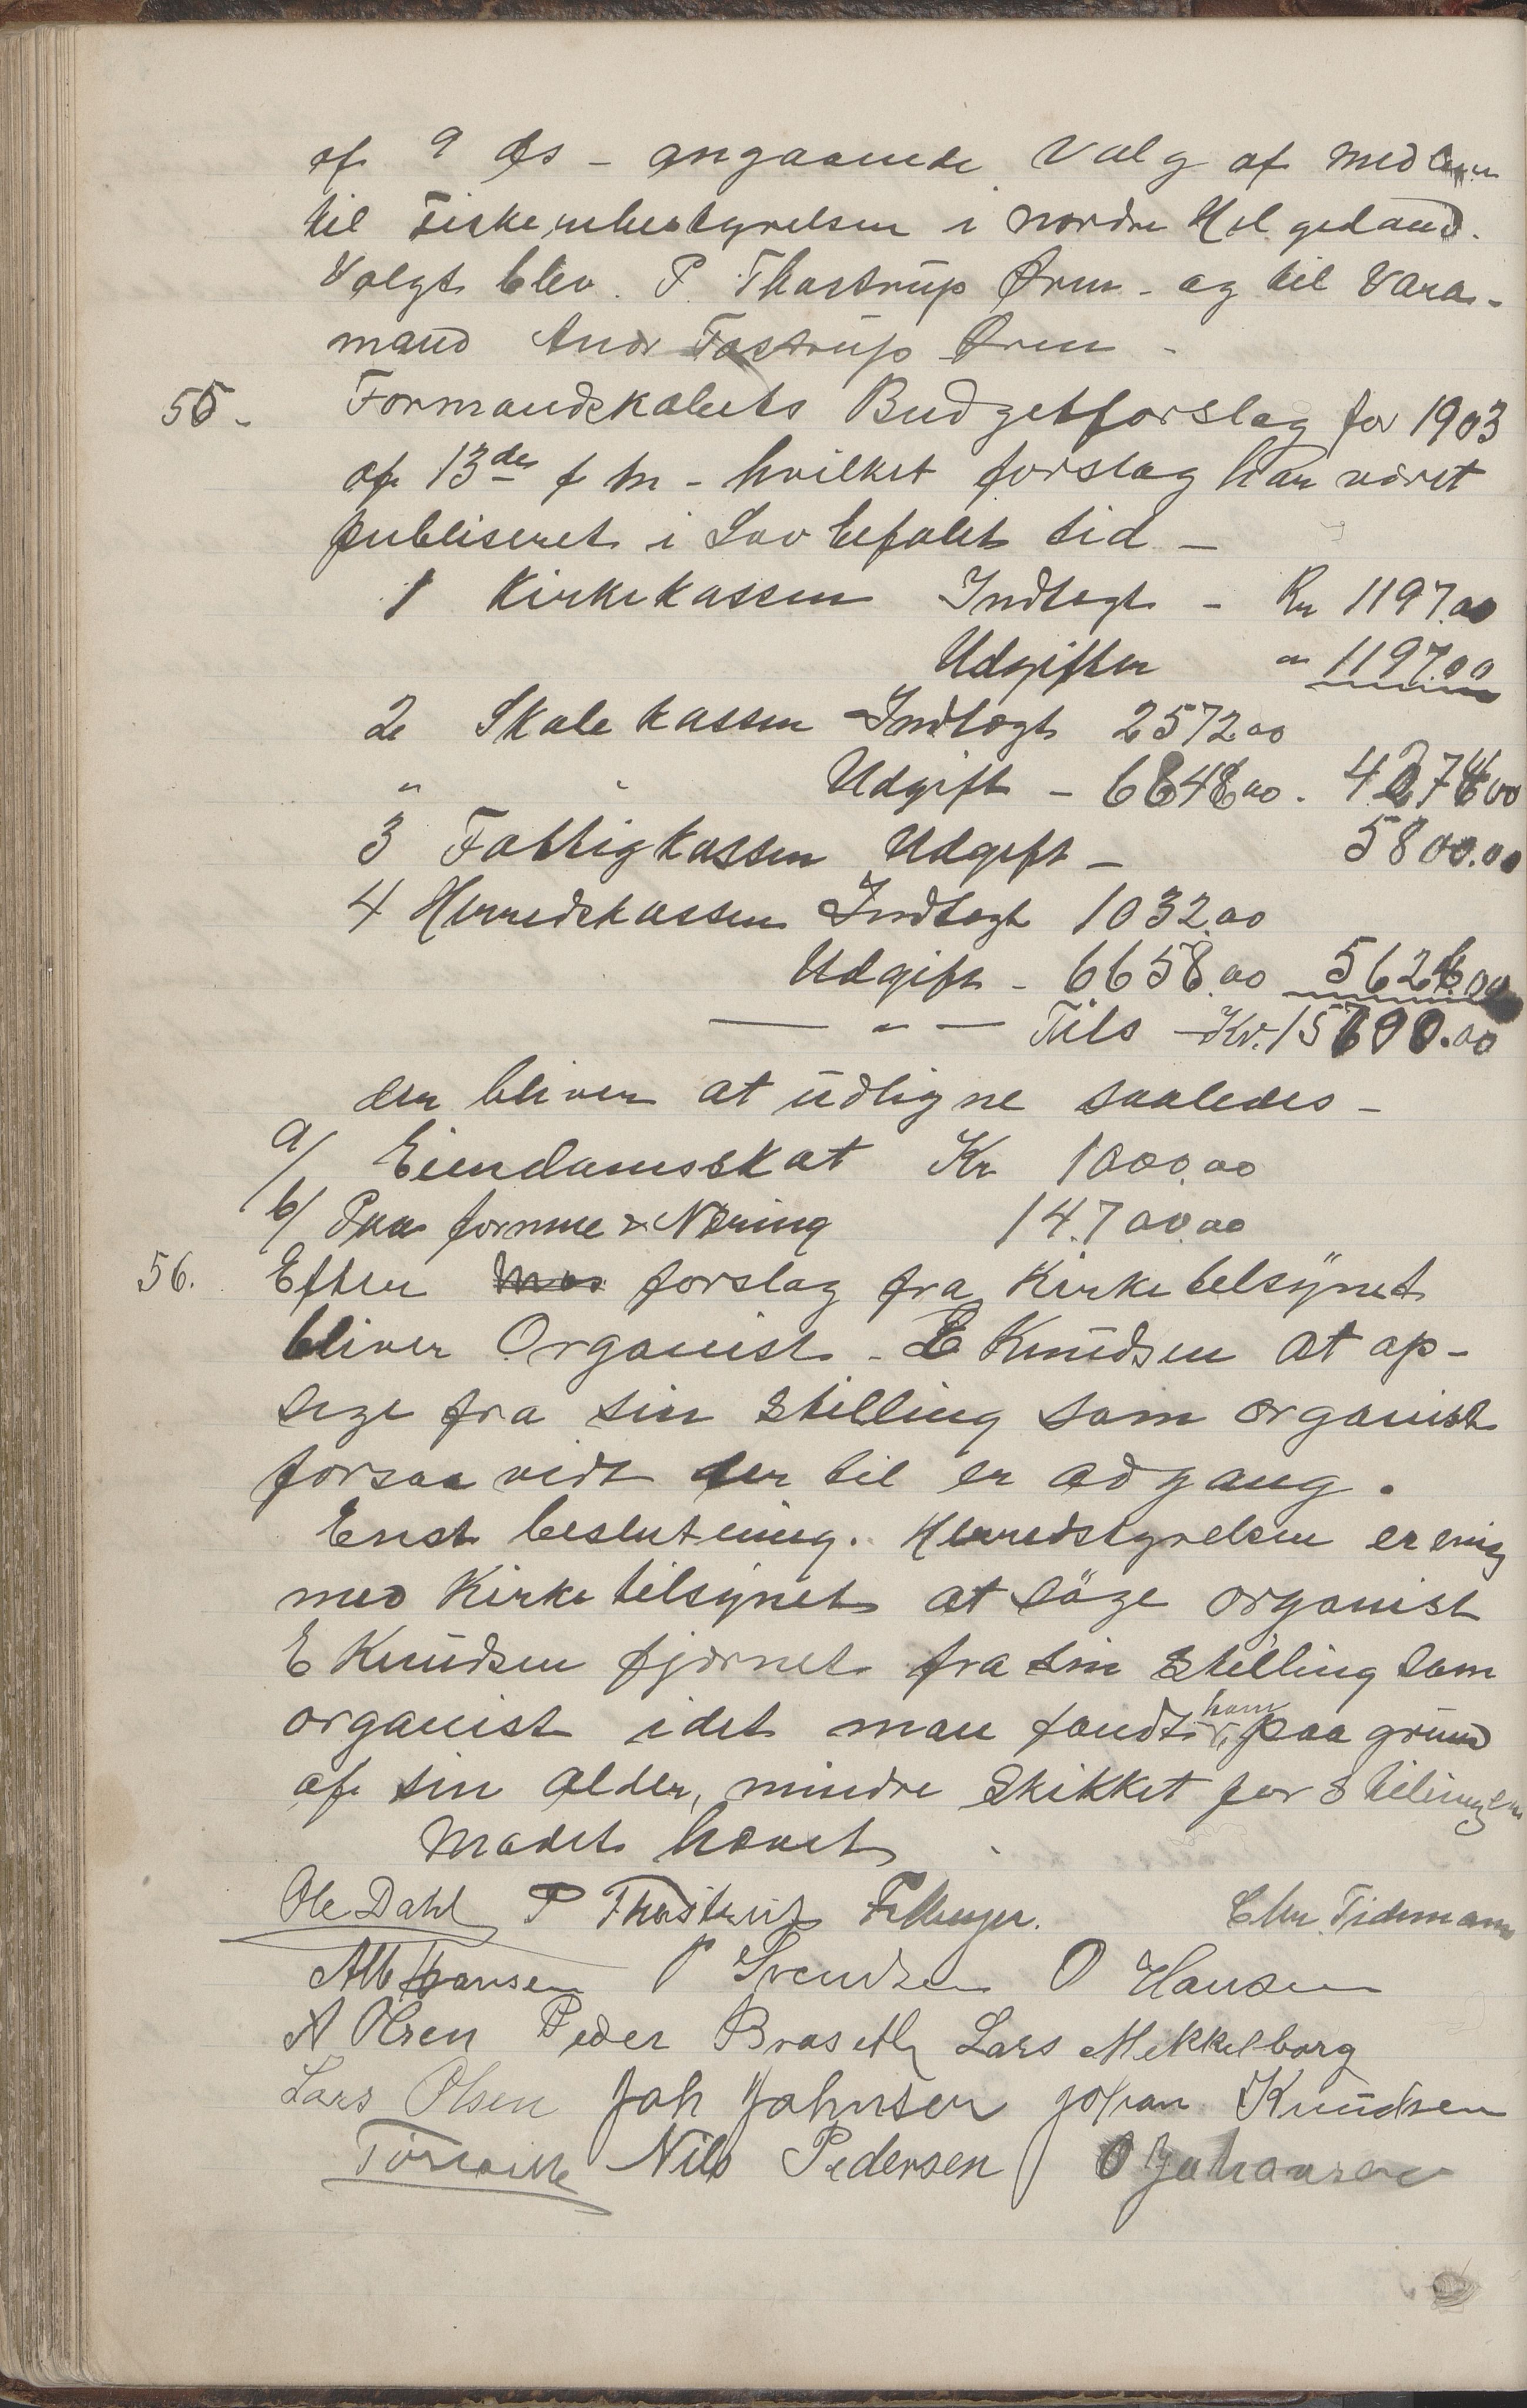 af 9 ds - angaaende Valg af medlem
til Fiskeribestyrelsen i nordre Helgeland.
Valgt blev. P. Thostrup Ørm - og til Vara-
mand Andr Tostrup Ørm -
55. Formandskabets Budgetforslag for 1903
af 13de f m - hvilket forslag har været
publiseret i Lovbefalet tid -
1 Kirkekassen Indtægt - Kr 1197.00
Udgifter " 1197.00
2 Skolekassen Indtægt 2572.00
" " Udgift - 6848.00. 4276.00
3 Fattigkassen Udgift - 5800.00
4 Herredskassen Indtægt 1032.00
Udgift - 6658.00 5626.00
— " — Tils - Kr. 15700.00
der bliver at udligne saaledes -
a/ Eiendomsskat Kr 1000.00
b/ Paa formue & Næring 14.700.00
56. Efter forslag fra Kirketilsynet
bliver Organist - E Knudsen at op-
sige fra sin stilling som organist
forsaavidt der til er adgang.
Enst beslutning. Herredstyrelsen er enig
med Kirketilsynet at søge organist
E Knudsen fjernet fra sin stilling som
organist idet man fandt ham paa grund
af sin alder, mindre skikket for stilingen
Mødet hævet
Ole Dahl P Thostrup F. Meyer. Chr. Tidemann
Alb Hansen P Svendsen O Hansen
A Olsen Peder Braseth Lars Mikkelborg
Lars Olsen Joh Johnsen Johan Knudsen
Nils Pedersen O Johansen